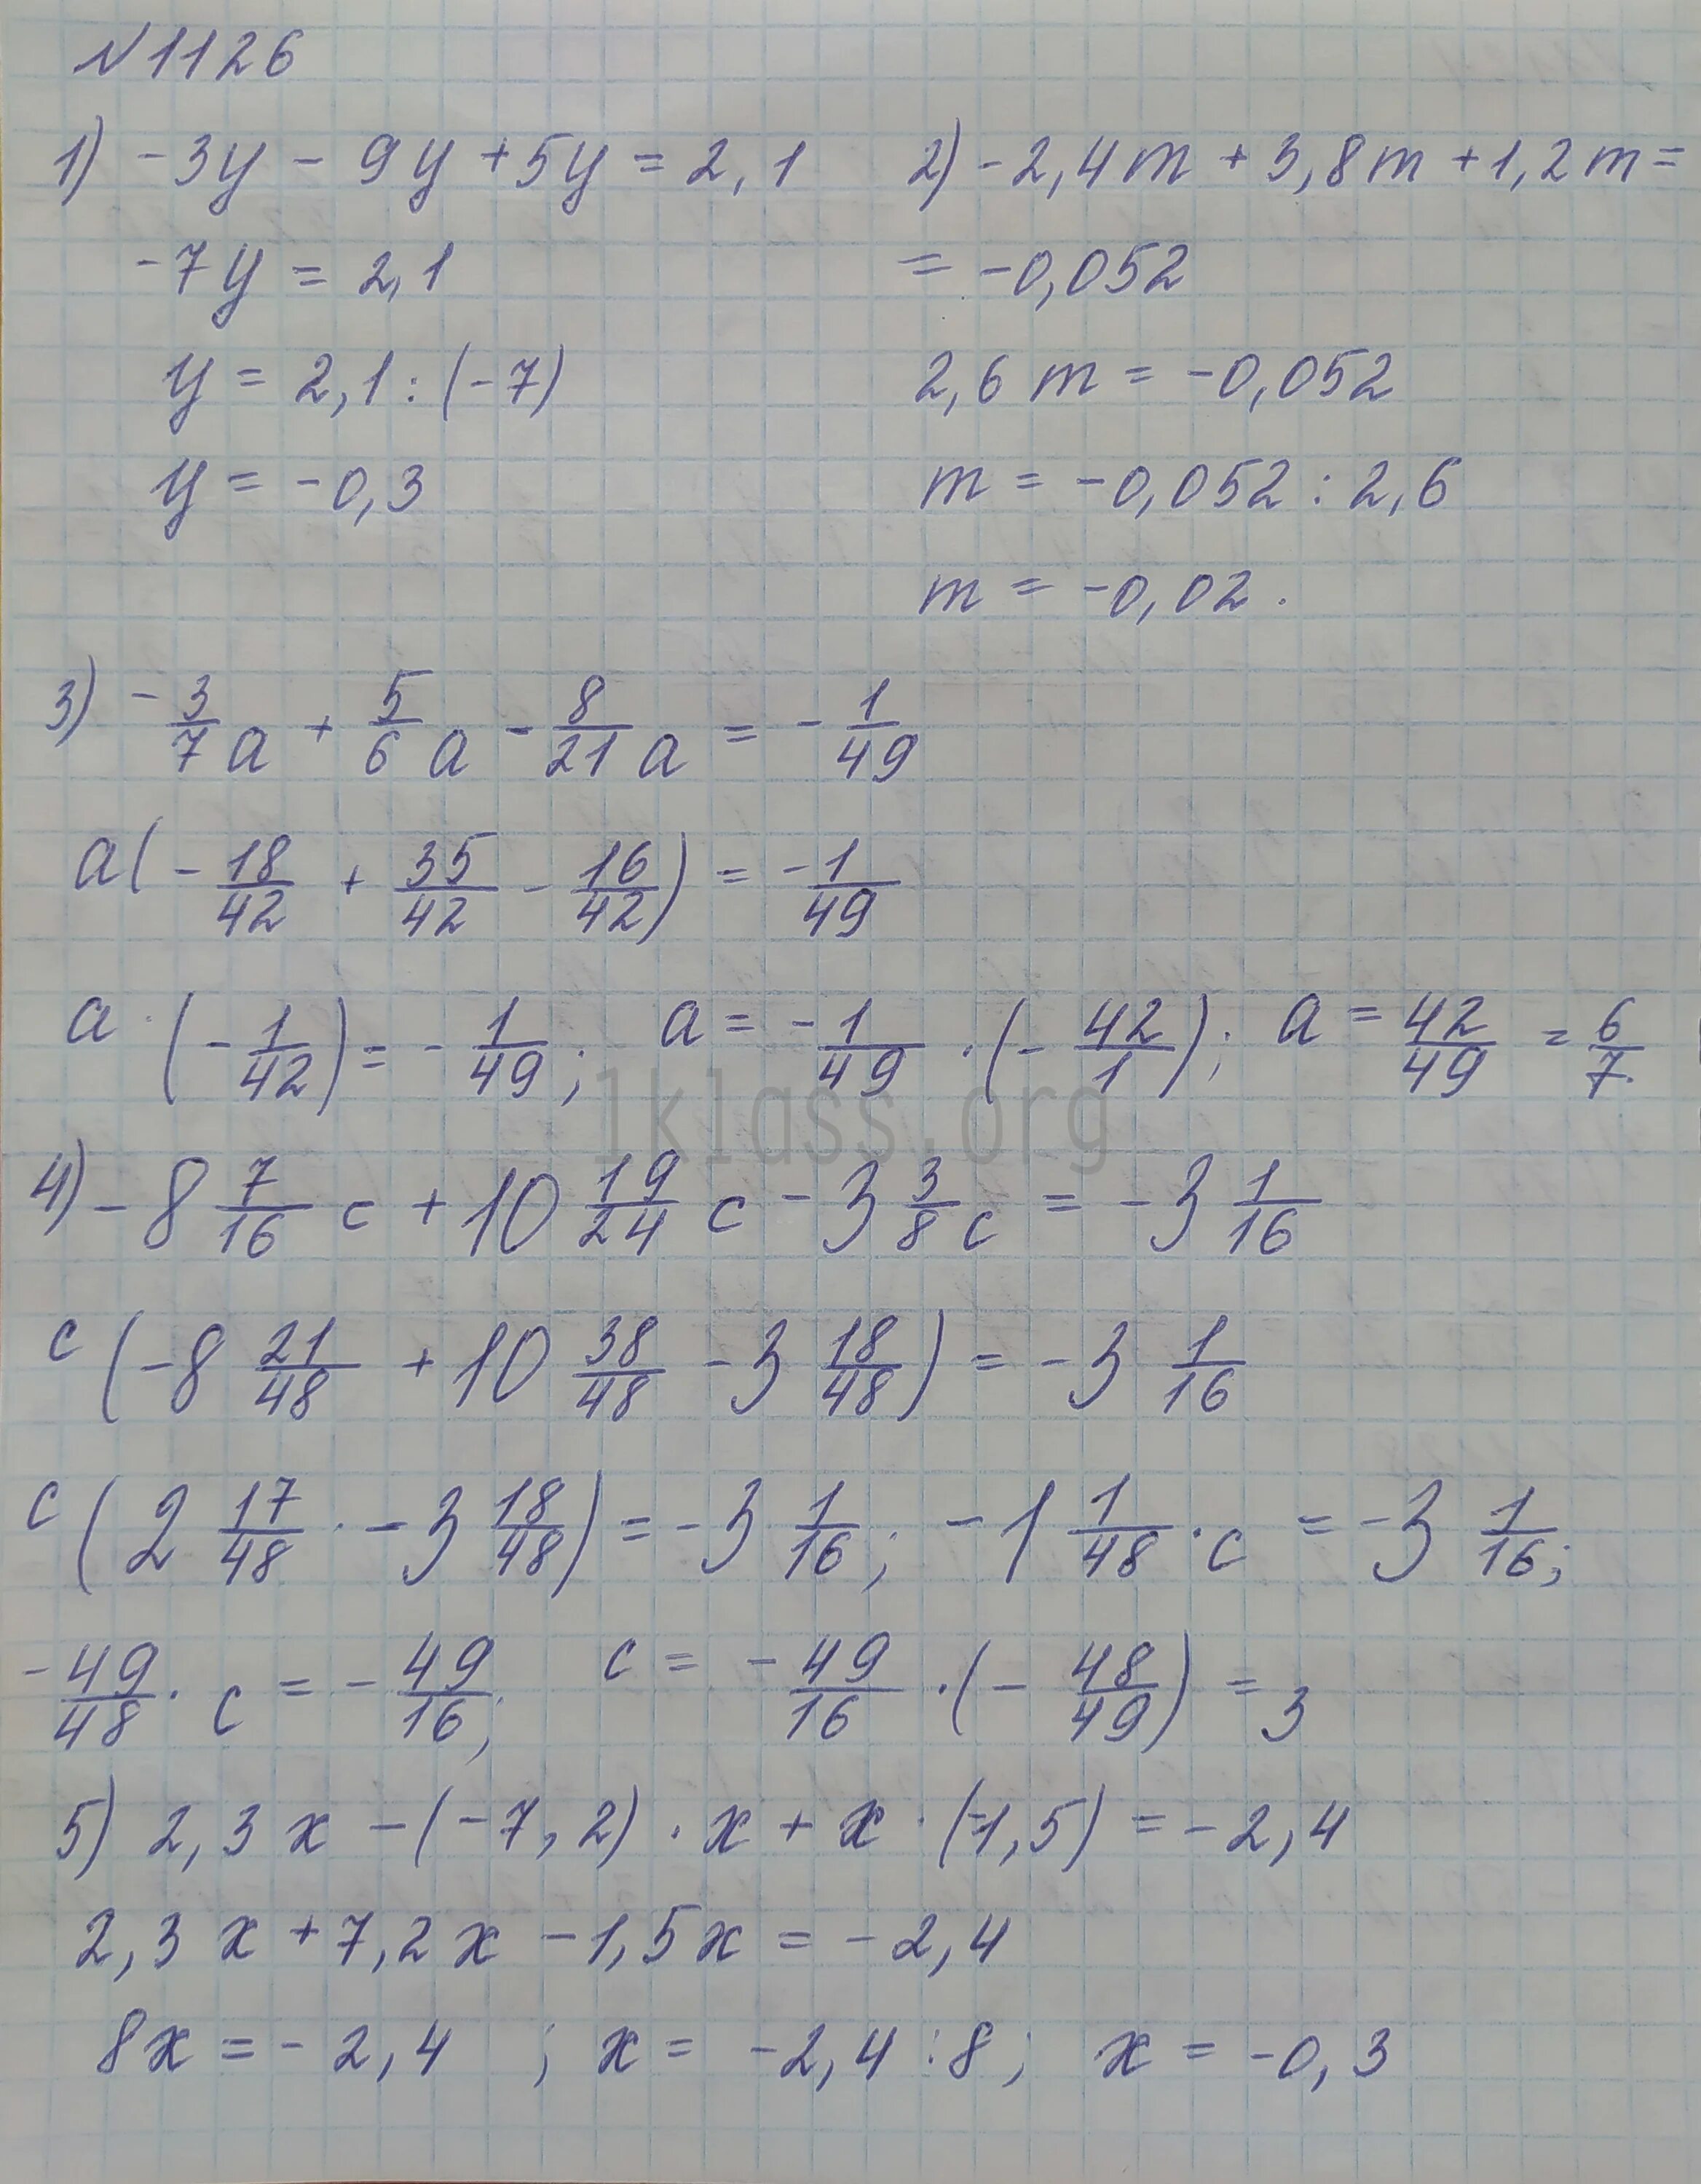 №1126
1) -3y - 9y + 5y = 2,1
-7y = 2,1
y = 2,1 : (-7)
y = -0,3
2) -2,4m + 3,8m + 1,2m =
= -0,052
2,6 m = -0,052
m = -0,052 : 2,6
m = -0,02.
3) -3/7 a + 5/6 a - 8/21 a = -1/49
a(-18/42 + 35/42 - 16/42) = -1/49
a · (-1/42) = -1/49; a = -1/49 · (-42/1); a = 42/49 = 6/7.
1klass.org
4) -8 7/16 c + 10 19/24 c - 3 3/8 c = -3 1/16
c (-8 21/48 + 10 38/48 - 3 18/48) = -3 1/16
c (2 17/48 · -3 18/48) = -3 1/16; -1 1/48 · c = -3 1/16;
-49/48 · c = -49/16; c = -49/16 · (-48/49) = 3
5) 2,3 x - (-7,2) · x + x · (-1,5) = -2,4
2,3 x + 7,2 x - 1,5x = -2,4
8x = -2,4 ; x = -2,4 : 8; x = -0,3